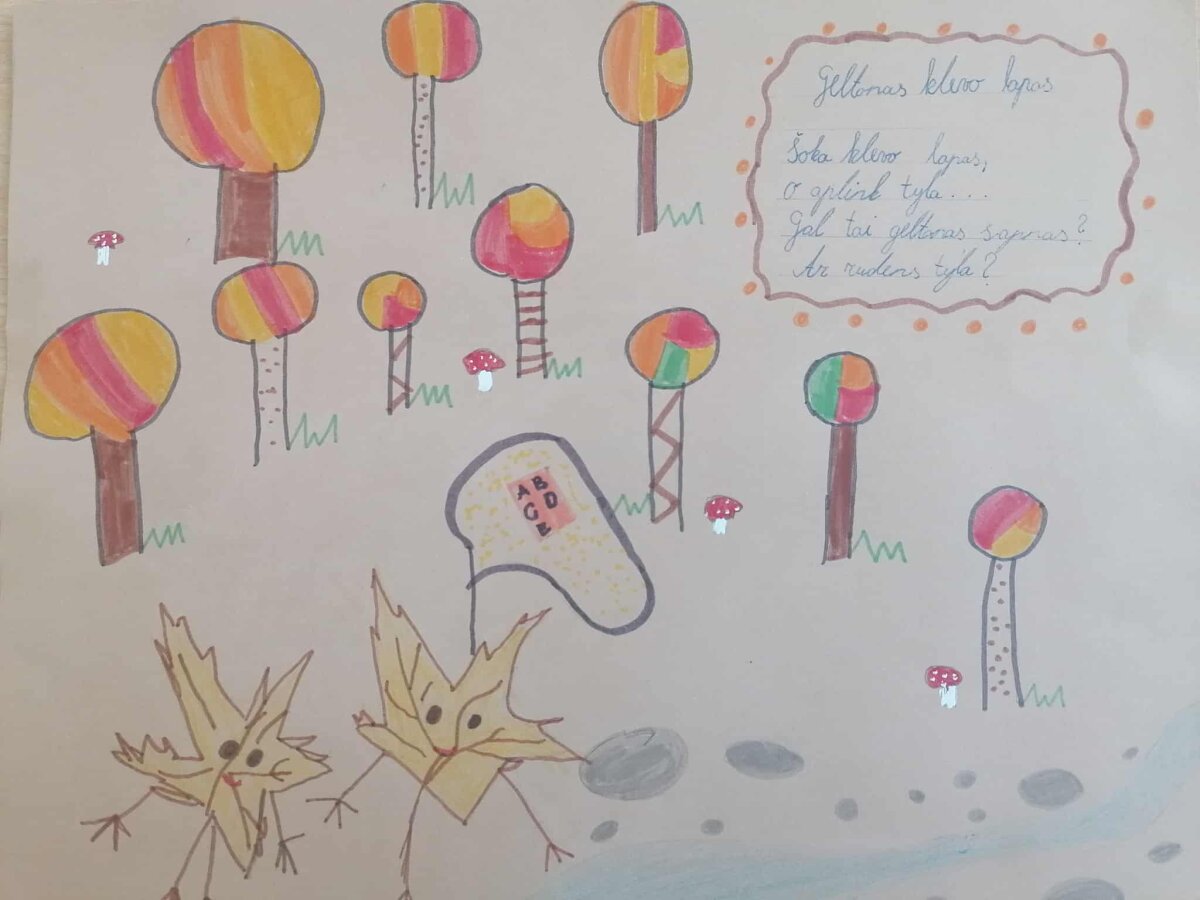 Geltonas klevo lapas
Šoka klevo lapas,
O aplink tyla...
Gal tai geltonas sapnas?
Ar rudens tyla?
A B
C D
E